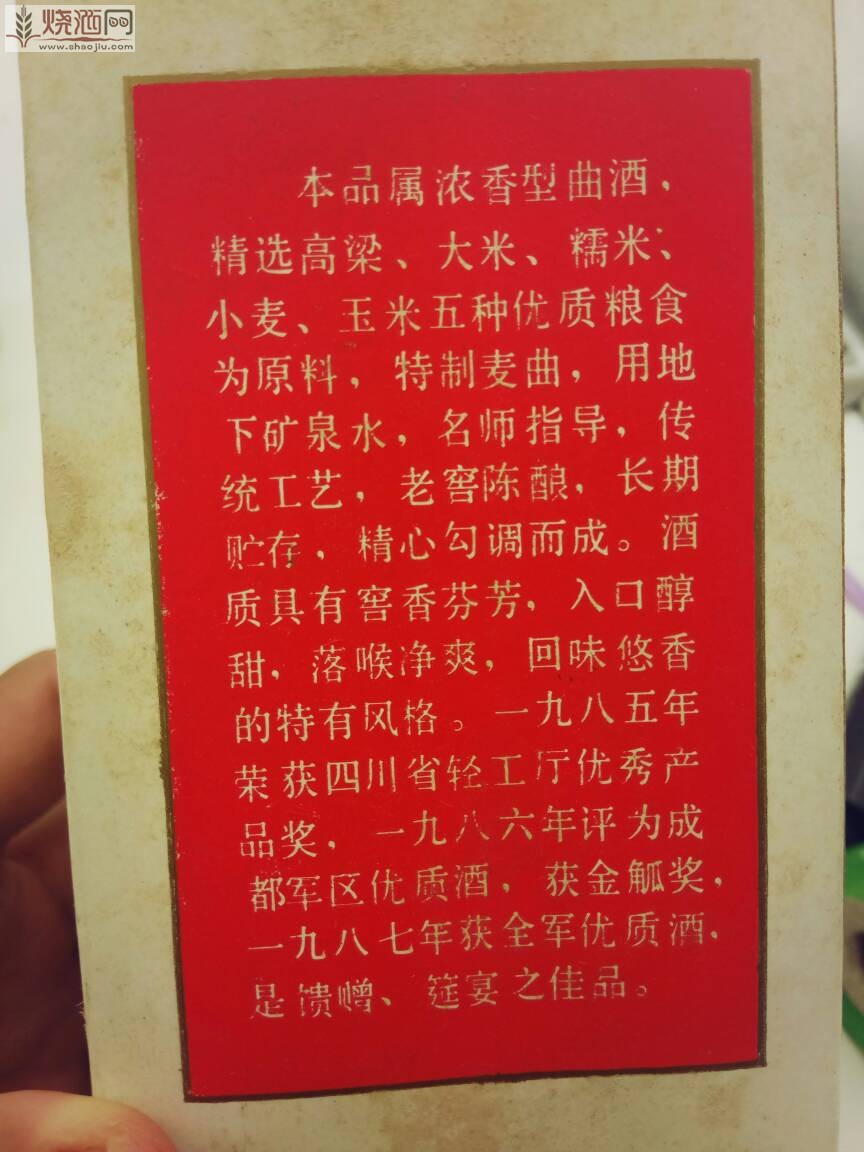 烧酒网
www.shaojiu.com
本品属浓香型曲酒，
精选高梁、大米、糯米、
小麦、玉米五种优质粮食
为原料，特制麦曲，用地
下矿泉水，名师指导，传
统工艺，老窖陈酿，长期
贮存，精心勾调而成。酒
质具有窖香芬芳，入口醇
甜，落喉净爽，回味悠香
的特有风格。一九八五年
荣获四川省轻工厅优秀产
品奖，一九八六年评为成
都军区优质酒，获金觚奖，
一九八七年获全军优质酒，
是馈憎、筵宴之佳品。